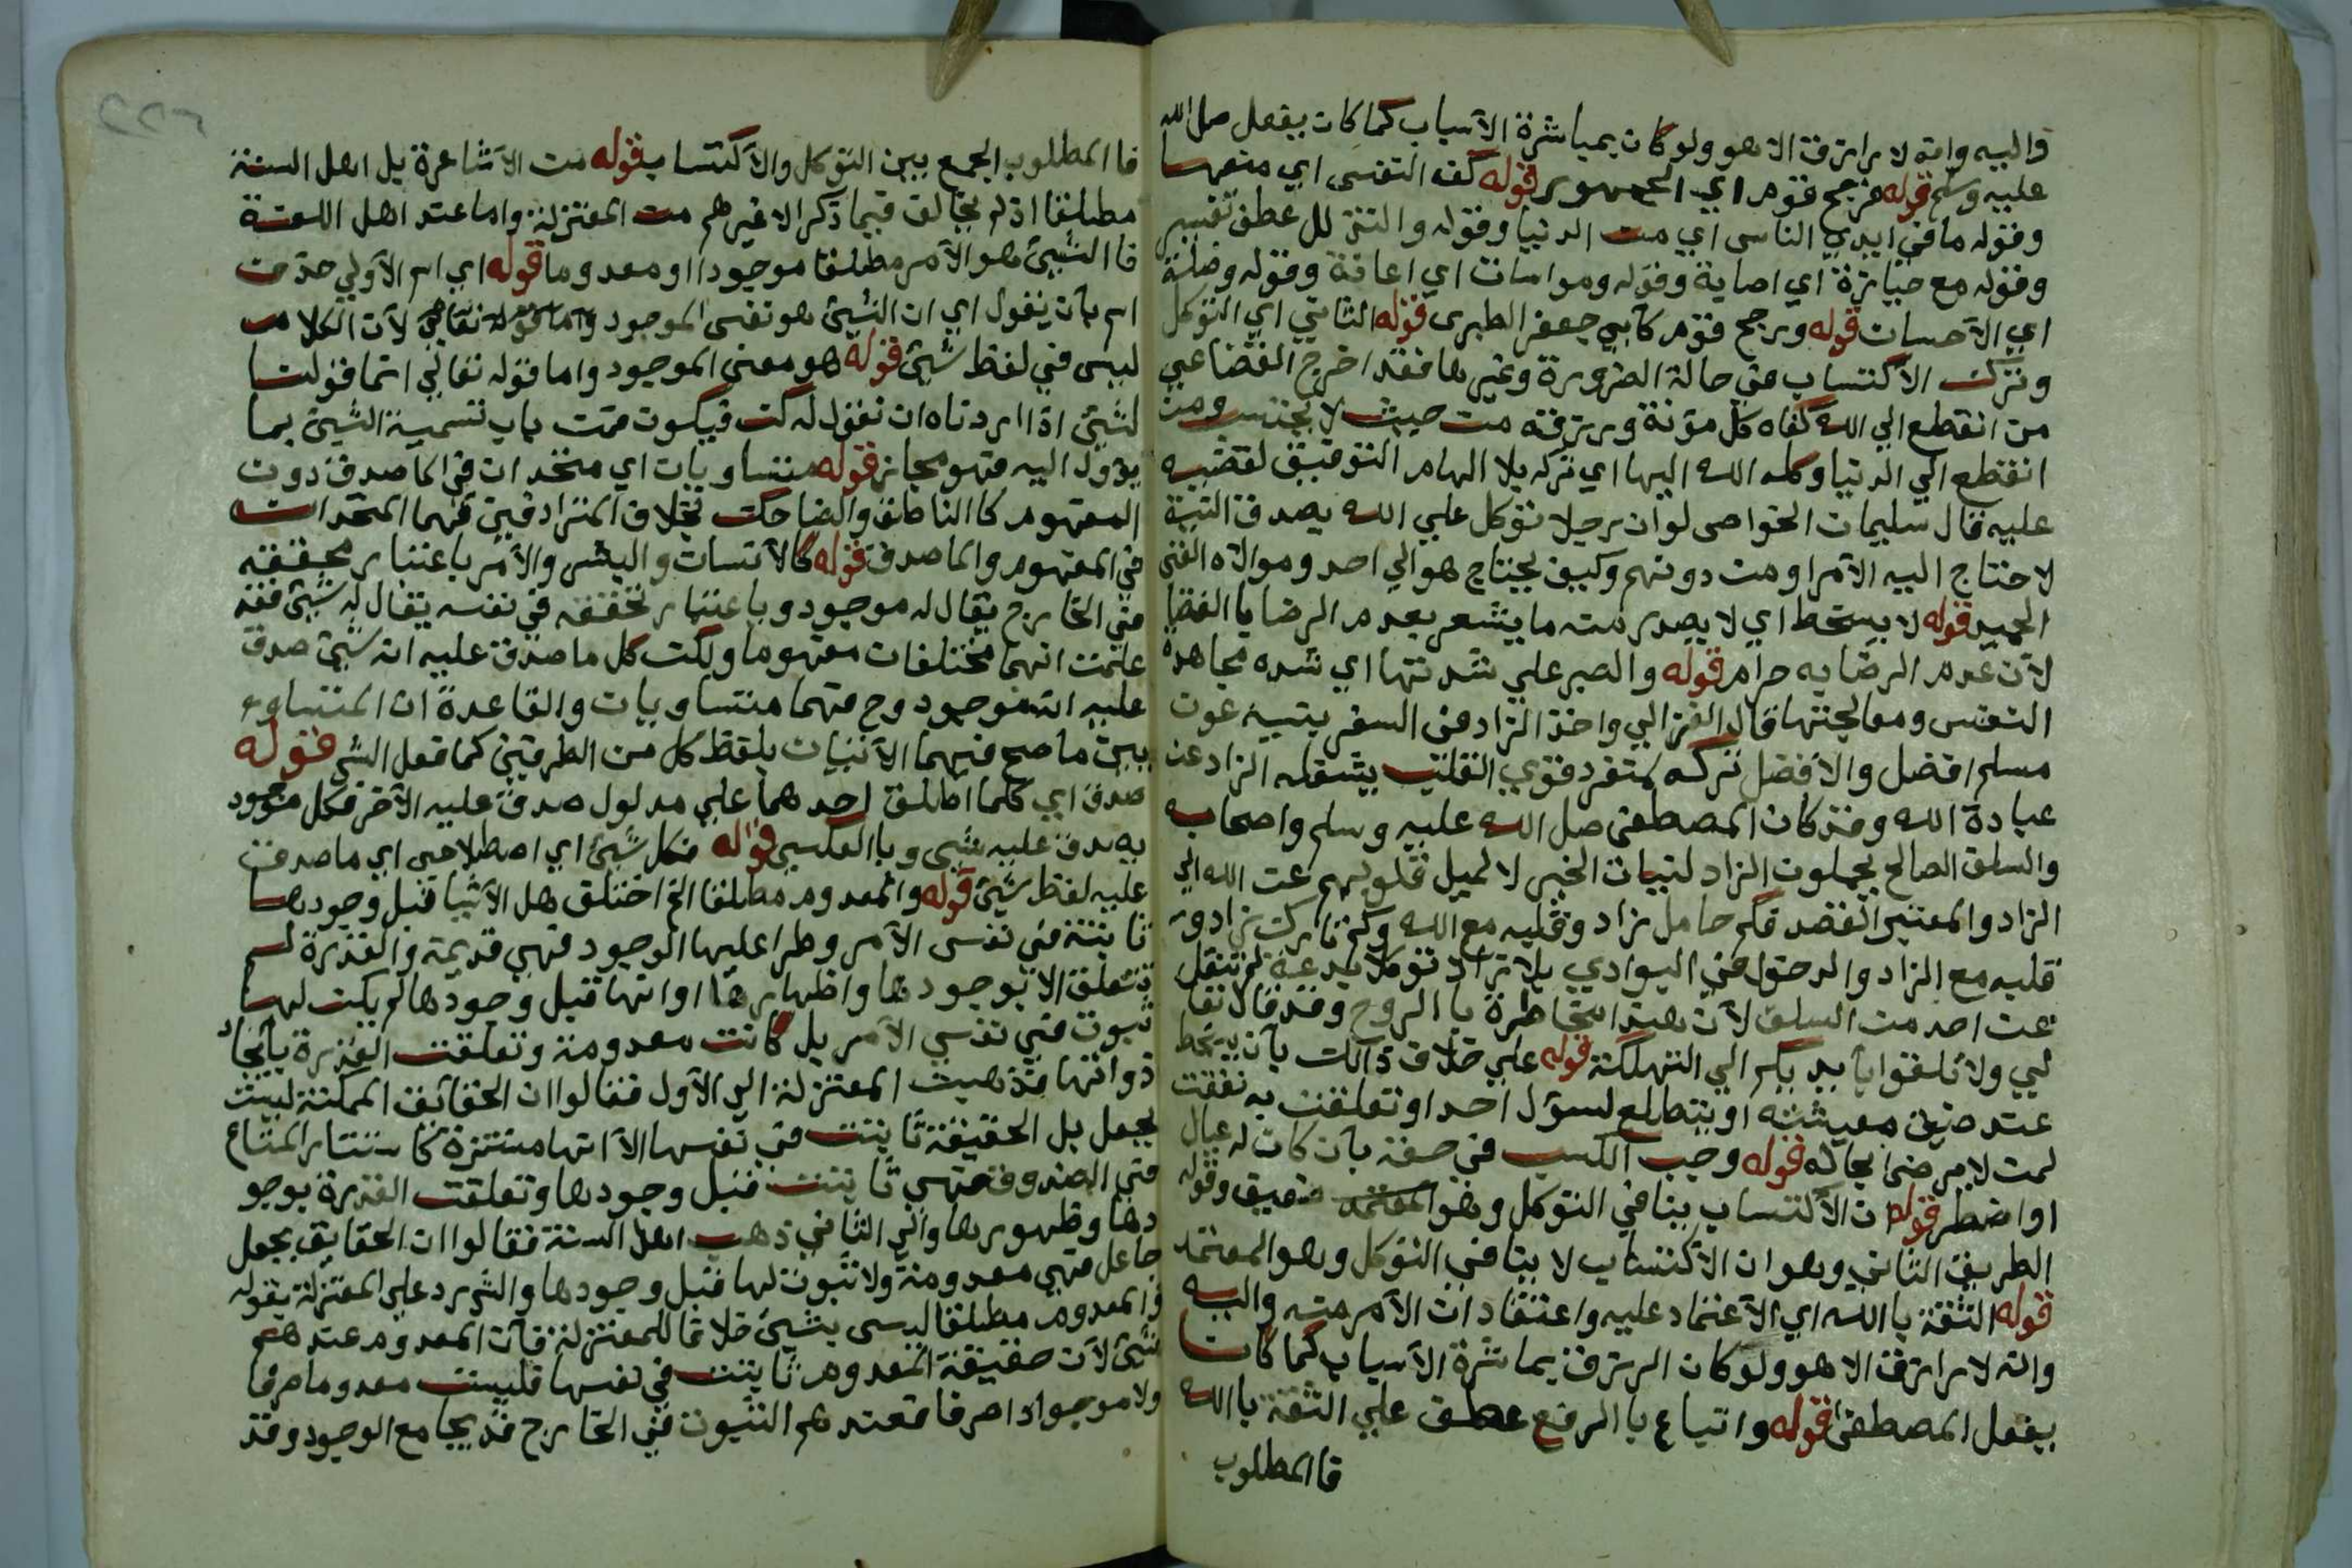 واليه وانه لا رازق الا هو ولو كان بمباشرة الأسباب كما كان يفعل صل الله
عليه وسلم قوله فرجح قوم اي الجمهور قوله كف النفس اي منعها
وقوله ما في ايدي الناس اي من الدنيا وقوله والتذلل عطف تفسير
وقوله مع حيازة اي اصابة وقوله ومواسات اي اعانة وقوله وصلة
اي الأحسان قوله ورجح قوم كأبي جعفر الطبرى قوله الثاني اي التوكل
وترك الأكتساب في حالة الضرورة وغيرها فقد اخرج القضاعي
من انقطع الي الله كفاه كل مؤنة ورزقه من حيث لا يحتسب ومن
انقطع الي الدنيا وكله الله اليها اي تركه بلا الهام التوفيق لقضيه
عليه قال سليمان الخواص لوان رجلا توكل علي الله بصدق النية
لاحتاج اليه الأمرا ومن دونهم وكيف يحتاج هو الي احد ومولاه الغني
الحميد قوله لا يسخط اي لا يصدر منه ما يشعر بعدم الرضا بالقضا
لأن عدم الرضا به حرام قوله والصبر علي شدتها اي شده مجاهدة
النفس ومعالجتها قال الغزالي واخذ الزاد في السفر بنية عون
مسلم افضل والأفضل تركه لمنفرد قوي القلب يشغله الزاد عن
عبادة الله وقد كان المصطفى صل الله عليه وسلم واصحابه
والسلف الصالح يحملون الزاد لنيات الخير لا لميل قلوبهم عن الله الي
الزاد والمعتبر القصد فكم حامل زاد وقلبه مع الله وكم تارك زاد و
قلبه مع الزاد والدخول في البوادي بلا زاد توكلا بدعة لم تنقل
عن احد من السلف لأن هذا مخاطرة بالروح وقد قال تعا
لي ولا تلقوا بأيديكم الي التهلكة قوله علي خلاف ذالك بأن يسخط
عند ضيق معيشته او يتطلع لسؤل احد او تعلقت به نفقت
لمن لا يرضى بحاله قوله وجب الكسب في صفة بأن كان له عيال
او اضطر قوله ان الأكتساب ينافي التوكل وهو المعتمد ضعيف وقوله
الطريق الثاني وهو ان الأكتساب لا ينافي التوكل وهو المعتمد
قوله الثقة بالله اي الأعتماد عليه واعتقاد ان الأمر منه واليه
وانه لا رازق الا هو ولو كان الرزق بمباشرة الأسباب كما كان
يفعل المصطفى قوله واتباع بالرفع عطف علي الثقة بالله
فا المطلوب
فا المطلوب الجمع بين التوكل والأكتساب قوله من الأشاعرة بل اهل السنة
مطلقا اذ لم يخالف فيما ذكر الا غيرهم من المعتزلة واما عند اهل اللغة
فا الشيئ هو الأمر مطلقا موجودا او معدوما قوله اي اسم الأولي حذف
اسم بأن يقول اي ان الشيئ هو نفس الموجود واما قوله تعالي لأن الكلام
ليس في لفظ شيئ قوله هو معنى الموجود واما قوله تعالي انما قولنا
لشيئ اذا اردناه ان نقول له كن فيكون فمن باب تسمية الشيئ بما
يؤول اليه فهو مجاز قوله متساويان اي متحدان في الماصدق دون
المفهوم كا الناطق والضاحك بخلاف المترادفين فهما المتحدان
في المفهوم والماصدق قوله كالأنسان والبشر والأمر باعتبار تحققه
في الخارج يقال له موجود وباعتبار تحققه في نفسه يقال له شيئ فقد
علمت انهما مختلفان مفهوما ولكن كل ما صدق عليه انه شيئ صدق
عليه انه موجود وح فهما متساويان والقاعدة ان المتساوي
يين ما صح فيهما الأتيان بلفظ كل من الطرفين كما فعل الش قوله
صدق اي كلما اطلق احدهما علي مدلول صدق عليه الأخر فكل موجود
يصدق عليه شي وبا العكس قوله فكل شيئ اي اصطلاحي اي ما صدق
عليه لفظ شيئ قوله والمعدوم مطلقا الخ اختلف هل الأشيا قبل وجودها
ثابتة في نفس الأمر وطرا عليها الوجود فهي قديمة والقدرة لم
تتعلق الا بوجودها واظهارها او انها قبل وجودها لم يكن لها
ثبوت في نفس الأمر بل كانت معدومة وتعلقت القدرة بأيجاد
ذواتها فذهبت المعتزلة الي الأول فقالوا ان الحقائق الممكنة ليست
بجعل بل الحقيقة ثابتت في نفسها الا انها مستترة كا ستتار المتاع
في الصندوق فهي ثابتت قبل وجودها وتعلقت القدرة بوجو
دها وظهورها والي الثاني ذهب اهل السنة فقالوا ان الحقايق بجعل
جاعل فهي معدومة ولا ثبوت لها قبل وجودها والش رد علي المعتزلة بقوله
والمعدوم مطلقا ليس بشيئ خلافا للمعتزلة فأن المعدوم عندهم
شيئ لأن حقيقة المعدوم ثابتت في نفسها فليست معدوما صرفا
ولا موجوادا صرفا فعندهم الثبوت في الخارج قد يجامع الوجود وقد